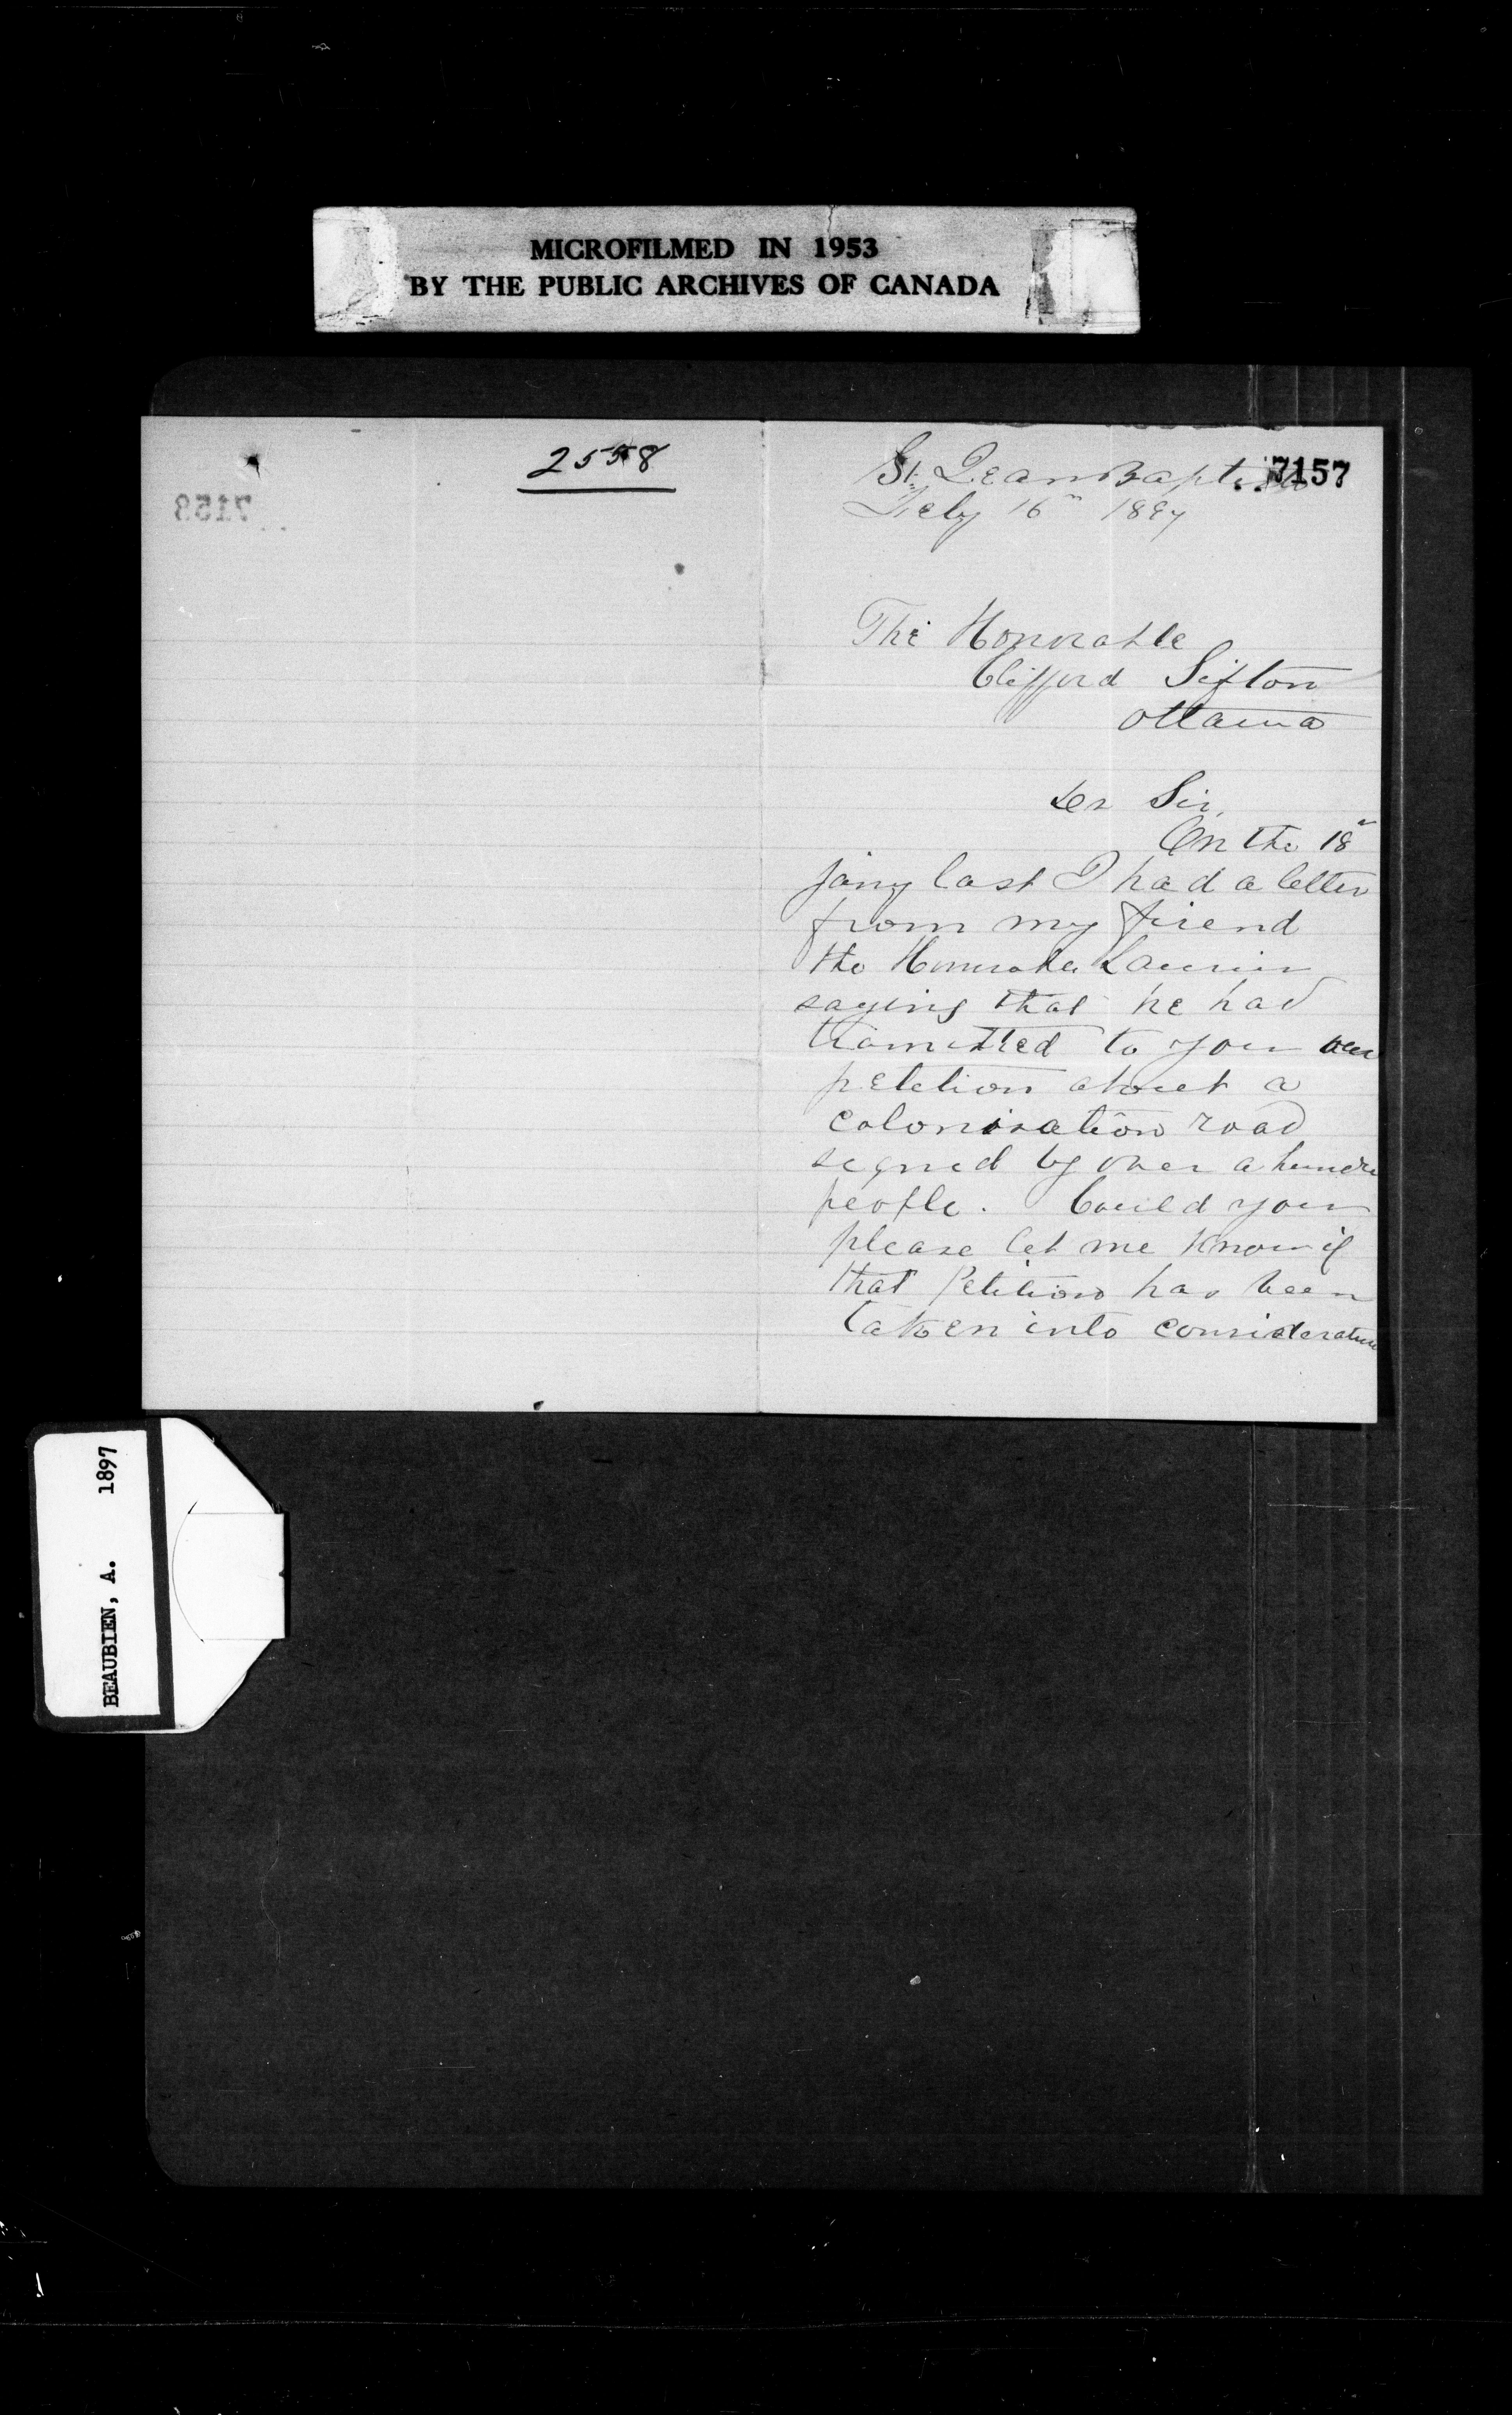 MICROFILMED IN 1953
BY THE PUBLIC ARCHIVES OF CANADA
2558
7158
7157
St. Jean Baptiste
Feby 16th 1897
The Honorable
Clifford Sifton
Ottawa
Dr Sir,
On the 18th
jany last I had a letter
from my friend
the Honorable Laurier
saying that he had
to you our
petition about a
colonisation road
signed by over a hundre
people. Could you
please let me know if
that Petition has been
taken into consideration
BEAUBIEN, A. 1897